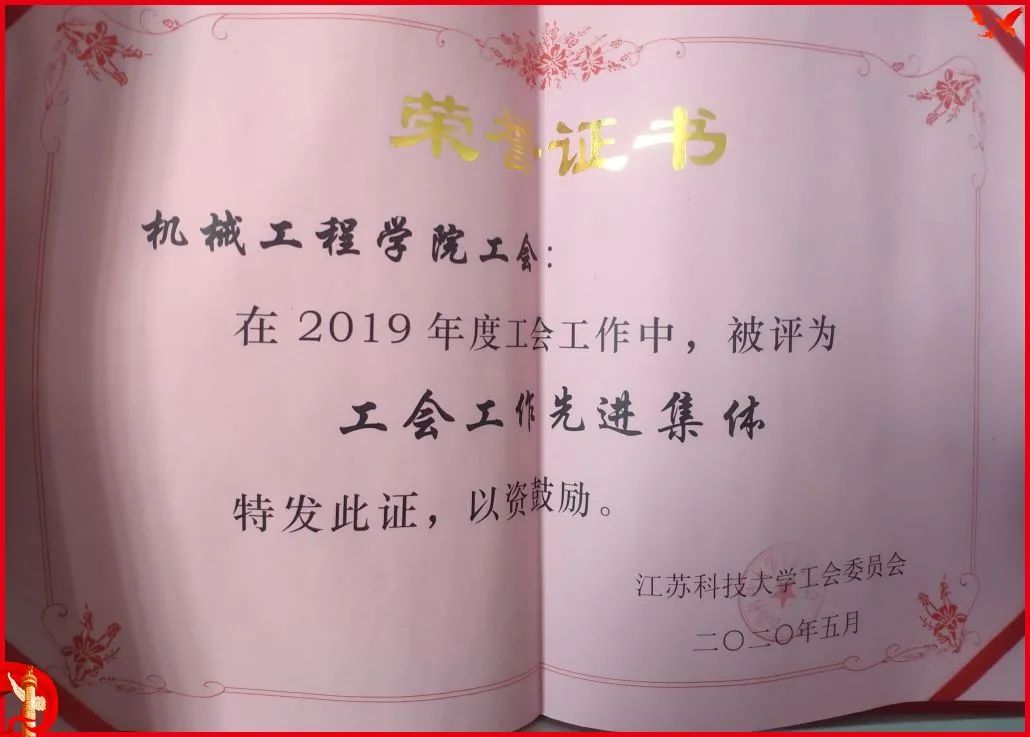 荣誉证书
机械工程学院工会：
在2019年度工会工作中，被评为
工会工作先进集体
特发此证，以资鼓励。
江苏科技大学工会委员会
二〇二〇年五月